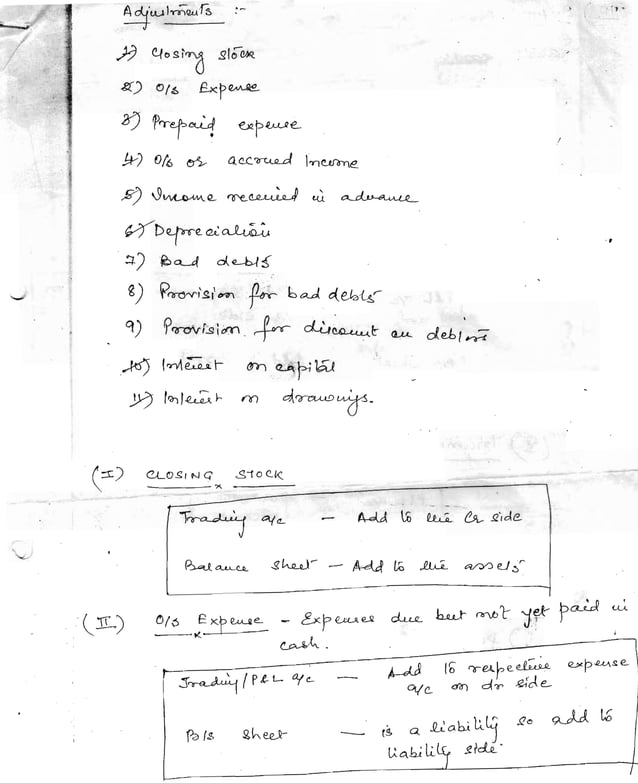 Adjustments :-
1) Closing stock
2) O/s Expense
3) Prepaid expense
4) O/s or accrued Income
5) Income received in advance
6) Depreciation
7) Bad debts
8) Provision for bad debts
9) Provision for discount on debtors
10) Interest on capital
11) Interest on drawings.
(I) CLOSING STOCK
Trading a/c — Add to the Cr side
Balance sheet — Add to the assets
(II) O/s Expense - Expenses due but not yet paid in
cash.
Trading/P&L a/c — Add to respective expense
a/c on dr side
B/s sheet — is a liability so add to
liability side.